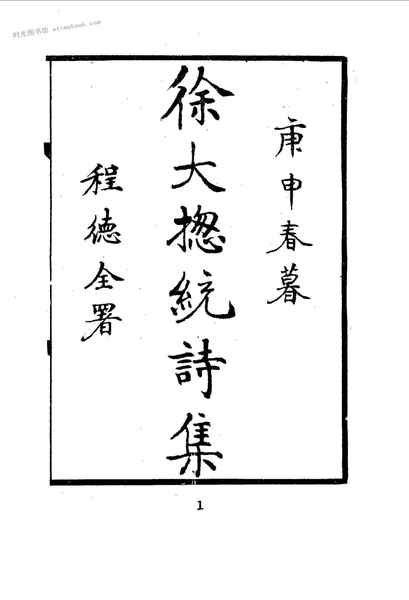 时光图书馆
庚申春暮
徐大揔統詩集
程德全署
1